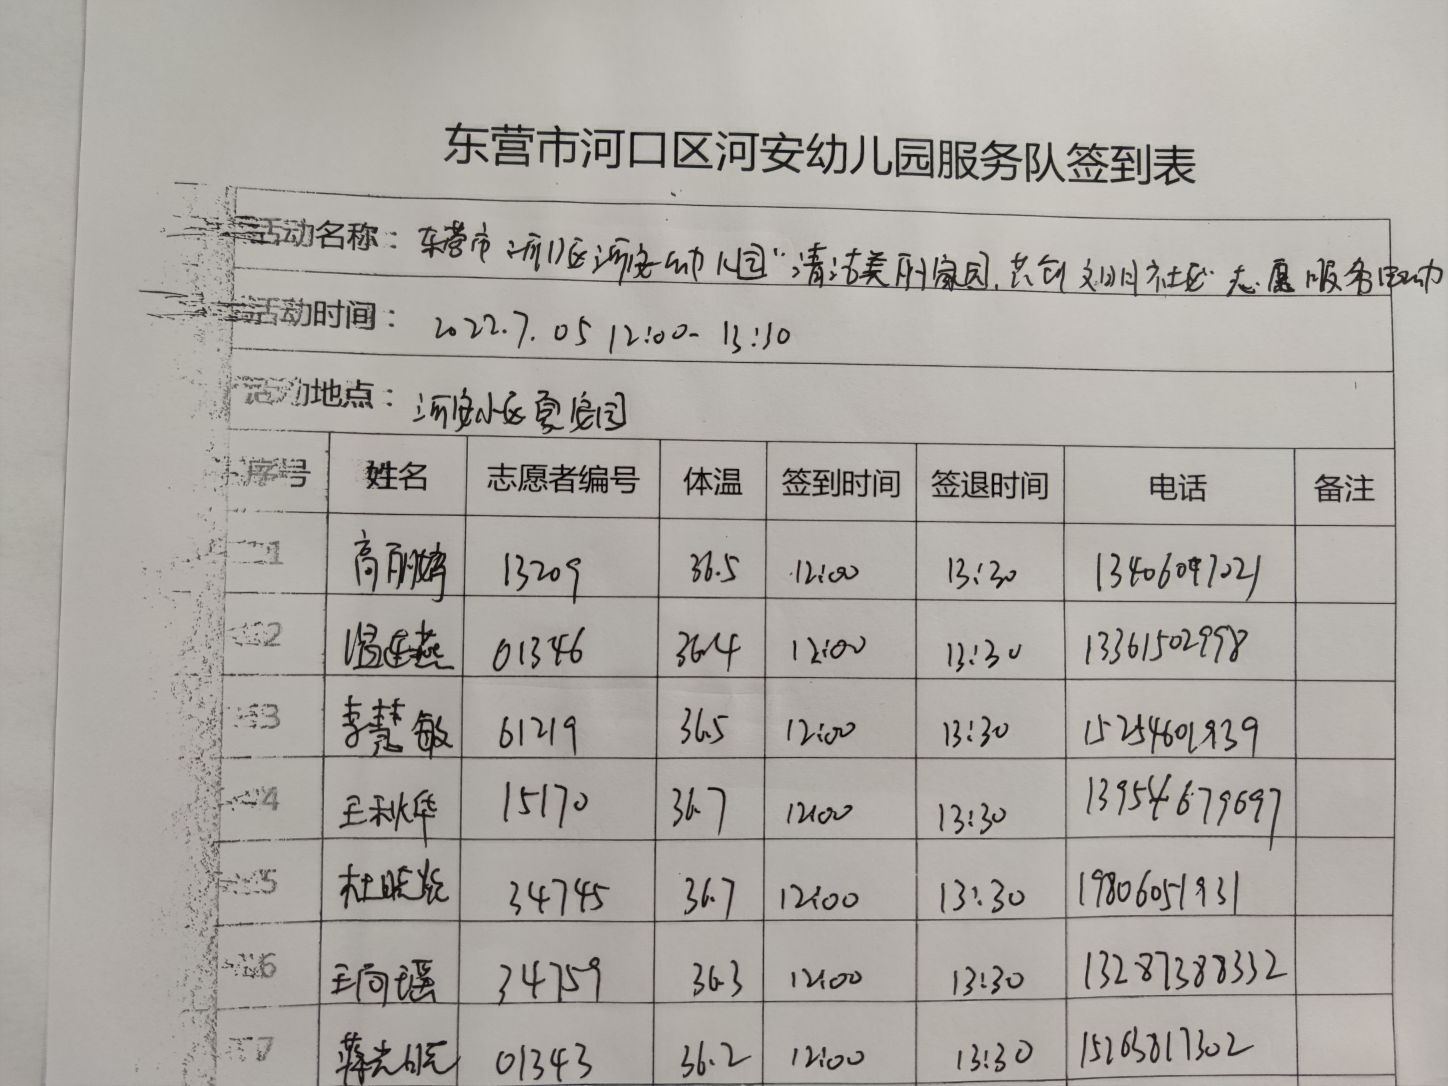 东营市河口区河安幼儿园服务队签到表
活动名称：东营市河口区河安幼儿园"清洁美丽家园,共创文明社区"志愿服务活动
活动时间：2022.7.05 12:00-13:30
活动地点：河安小区夏安园
序号 姓名 志愿者编号 体温 签到时间 签退时间 电话 备注
1 高丽婷 13209 36.5 12:00 13:30 13406097021
2 温连燕 01346 36.4 12:00 13:30 13361502998
3 李慧敏 61219 36.5 12:00 13:30 15254601939
4 王秋华 15170 36.7 12:00 13:30 13954679697
5 杜晓 34745 36.7 12:00 13:30 19806051931
6 王向瑶 34759 36.3 12:00 13:30 13287388332
7 蒋 01343 36.2 12:00 13:30 15263817302